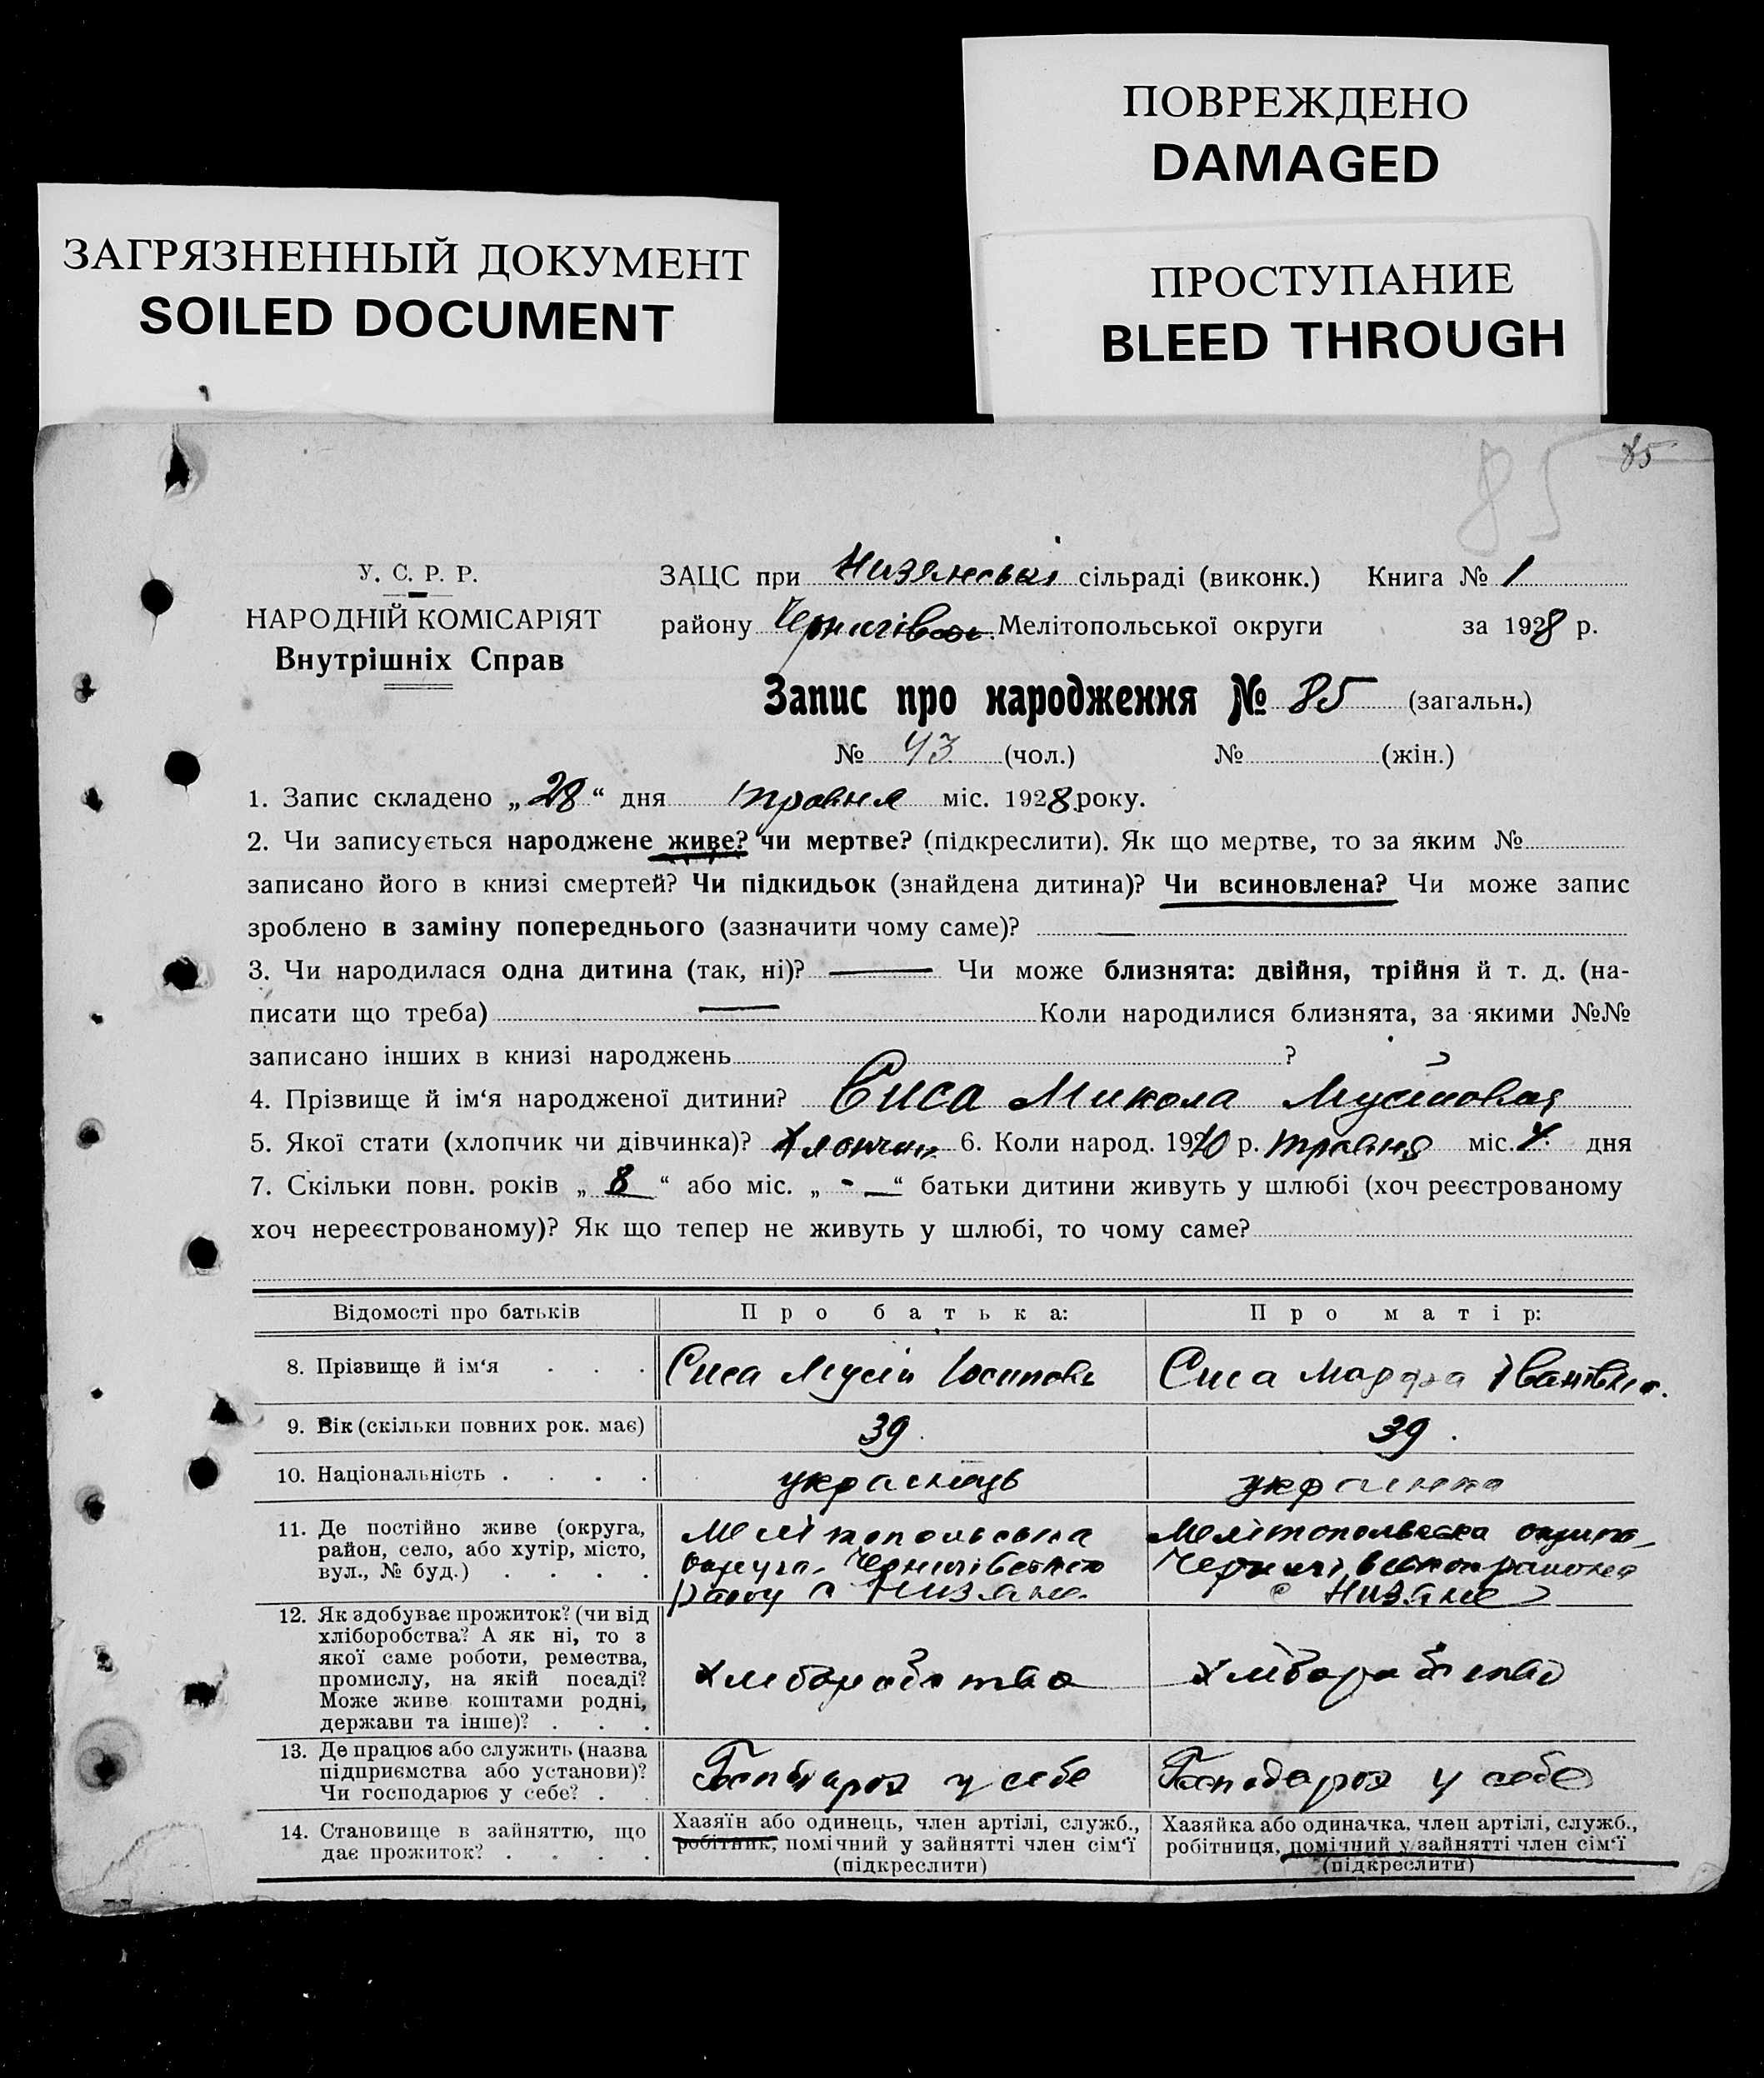 ПОВРЕЖДЕНО
DAMAGED
ЗАГРЯЗНЕННЫЙ ДОКУМЕНТ
SOILED DOCUMENT
ПРОСТУПАНИЕ
BLEED THROUGH
85
85
У. С. Р. Р.
НАРОДНІЙ КОМІСАРІЯТ
Внутрішніх Справ
ЗАЦС при Низянські сільраді (виконк.) Книга № 1
району Чернигівськ. Мелітопольської округи за 1928 р.
Запис про народження № 85 (загальн.)
№ 43 (чол.) № (жін.)
1. Запис складено „28“ дня травня міс. 1928 року.
2. Чи записується народжене живе? чи мертве? (підкреслити). Як що мертве, то за яким №
записано його в книзі смертей? Чи підкидьок (знайдена дитина)? Чи всиновлена? Чи може запис
зроблено в заміну попереднього (зазначити чому саме)? —
3. Чи народилася одна дитина (так, ні)? — Чи може близнята: двійня, трійня й т. д. (на-
писати що треба) — Коли народилися близнята, за якими №№
записано інших в книзі народжень ?
4. Прізвище й ім‘я народженої дитини? Сиса Микола Мусійовая
5. Якої стати (хлопчик чи дівчинка)? Хлопчик 6. Коли народ. 19 р. травня міс. дня
7. Скільки повн. років „ 8 “ або міс. „ - — “ батьки дитини живуть у шлюбі (хоч реєстрованому
хоч нереєстрованому)? Як що тепер не живуть у шлюбі, то чому саме?
Відомості про батьків Про батька: Про матір:
8. Прізвище й ім‘я . . . Сиса Мусій Іосиповь Сиса Марфа Іванівна.
9. Вік (скільки повних рок. має) 39. 39.
10. Національність . . . . украінець украинка
11. Де постійно живе (округа,
район, село, або хутір, місто,
вул., № буд.) . . . .
Мелітопольська
округа, Чернигівського
раону с Низяне.
Мелітопольска округа,
Чернигівського раиона
с Низяне
12. Як здобуває прожиток? (чи від
хліборобства? А як ні, то з
якої саме роботи, ремества,
промислу, на якій посаді?
Може живе коштами родні,
держави та інше)? . . .
хліборобство
хліборобство
13. Де працює або служить (назва
підприємства або установи)?
Чи господарює у себе? . .
Господарює у себе
Господарює у себе
14. Становище в зайняттю, що
дає прожиток? . . . .
Хазяїн або одинець, член артілі, служб.,
робітник, помічний у зайнятті член сім‘ї
(підкреслити)
Хазяйка або одиначка, член артілі, служб.,
робітниця, помічний у зайнятті член сім‘ї
(підкреслити)